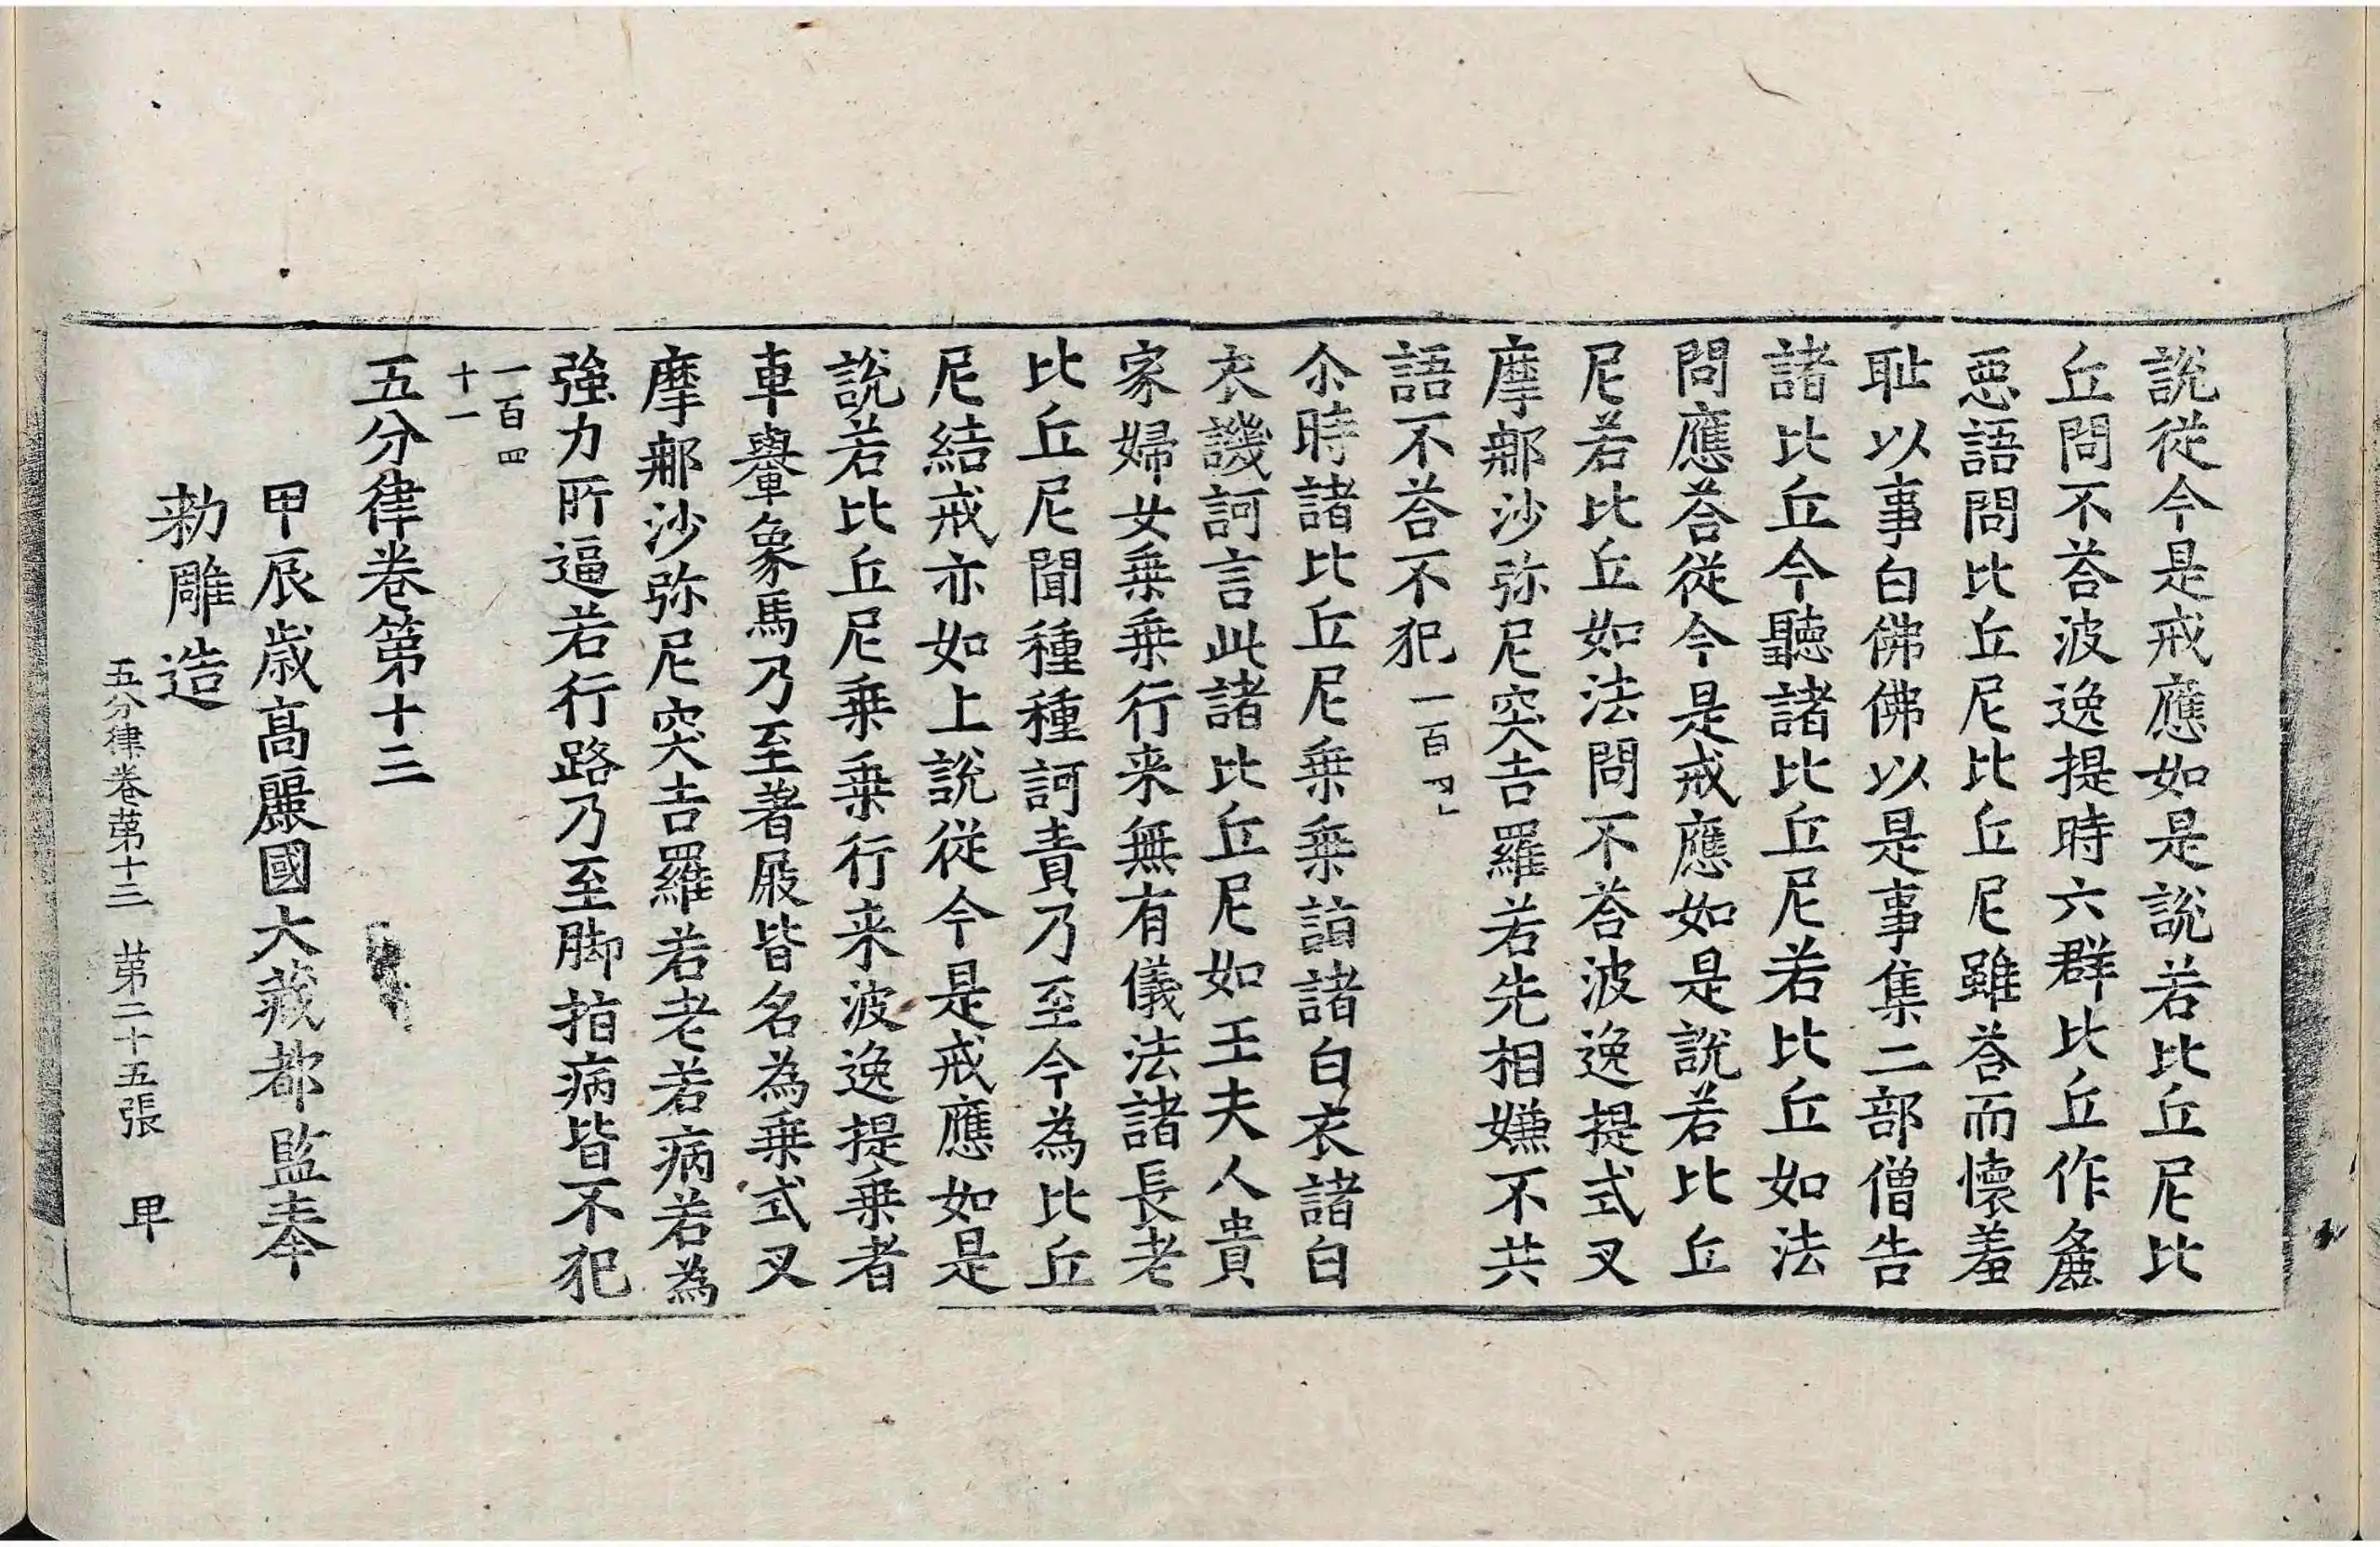 說從今是戒應如是說若比丘尼比
丘問不荅波逸提時六群比丘作麁
惡語問比丘尼比丘尼雖荅而懷羞
耻以事白佛佛以是事集二部僧告
諸比丘今聽諸比丘尼若比丘如法
問應荅從今是戒應如是說若比丘
尼若比丘如法問不荅波逸提式叉
摩那沙弥尼突吉羅若先相嫌不共
語不荅不犯一百四十
尒時諸比丘尼乗乗詣諸白衣諸白
衣譏訶言此諸比丘尼如王夫人貴
家婦女乗乗行来無有儀法諸長老
比丘尼聞種種訶責乃至今為比丘
尼結戒亦如上說從今是戒應如是
說若比丘尼乗乗行来波逸提乗者
車轝象馬乃至著屐皆名為乗式叉
摩那沙弥尼突吉羅若老若病若為
強力所逼若行路乃至脚指病皆不犯
一百四
十一
五分律卷第十三
甲辰歳高麗國大藏都監奉
勑雕造
五分律卷苐十三 苐二十五張 甲